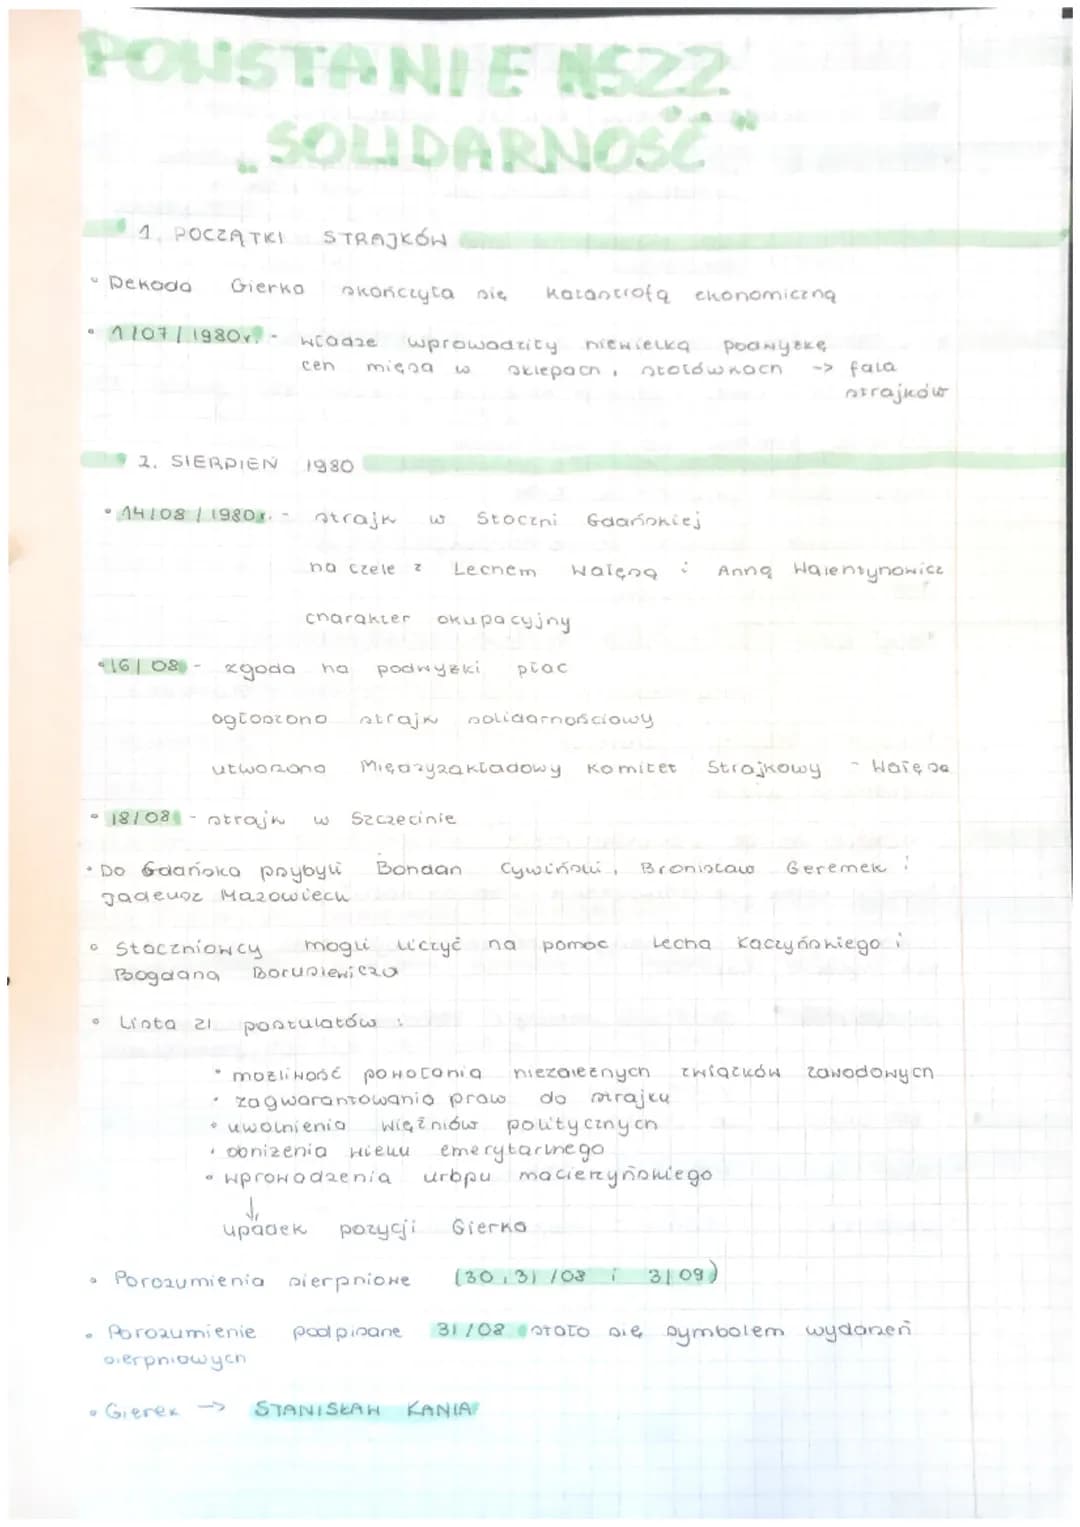 POWSTANIE NSZZ
„SOLIDARNOŚĆ"
1. POCZĄTKI STRAJKÓW
• Dekada Gierka skończyła się katastrofą ekonomiczną
• 1/07/1980r. - władze wprowadziły niewielką podwyżkę
cen mięsa w sklepach, stołówkach -> fala
strajków
2. SIERPIEŃ 1980
• 14/08/1980r. - strajk w Stoczni Gdańskiej
na czele z Lechem Wałęsą i Anną Walentynowicz
charakter okupacyjny
• 16/08 - zgoda na podwyżki płac
ogłoszono strajk solidarnościowy
utworzono Międzyzakładowy Komitet Strajkowy - Wałęsa
• 18/08 - strajk w Szczecinie
• Do Gdańska przybyli Bohdan Cywiński, Bronisław Geremek i
Tadeusz Mazowiecki
• Stoczniowcy mogli liczyć na pomoc Lecha Kaczyńskiego i
Bogdana Borusiewicza
• Lista 21 postulatów:
• możliwość powołania niezależnych związków zawodowych
• zagwarantowania praw do strajku
• uwolnienia więźniów politycznych
• obniżenia wieku emerytarlnego
• wprowadzenia urlopu macierzyńskiego
↓
upadek pozycji Gierka
• Porozumienia sierpniowe (30, 31/08 i 3/09)
• Porozumienie podpisane 31/08 stało się symbolem wydarzeń
sierpniowych
• Gierek -> STANISŁAW KANIA